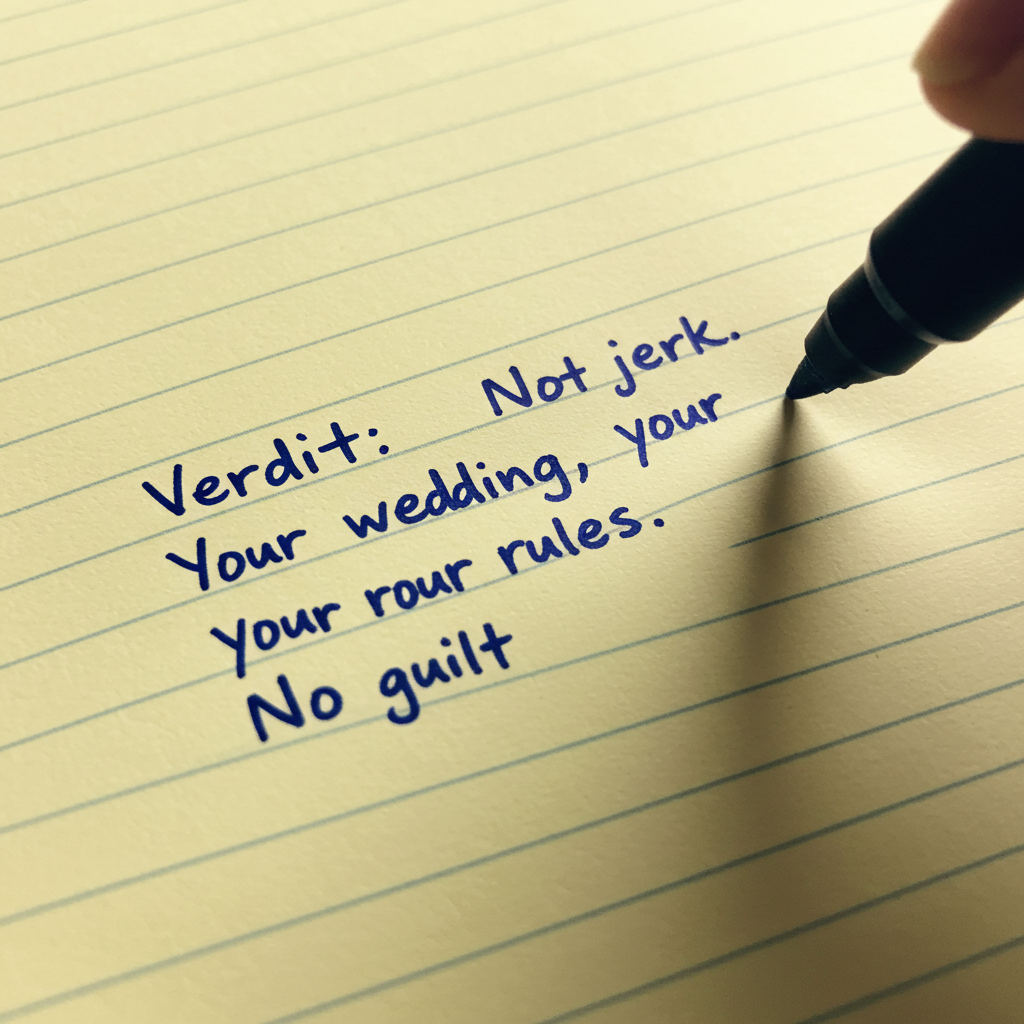 Verdit: Not jerk.
Your wedding, your
your rour rules.
No guilt